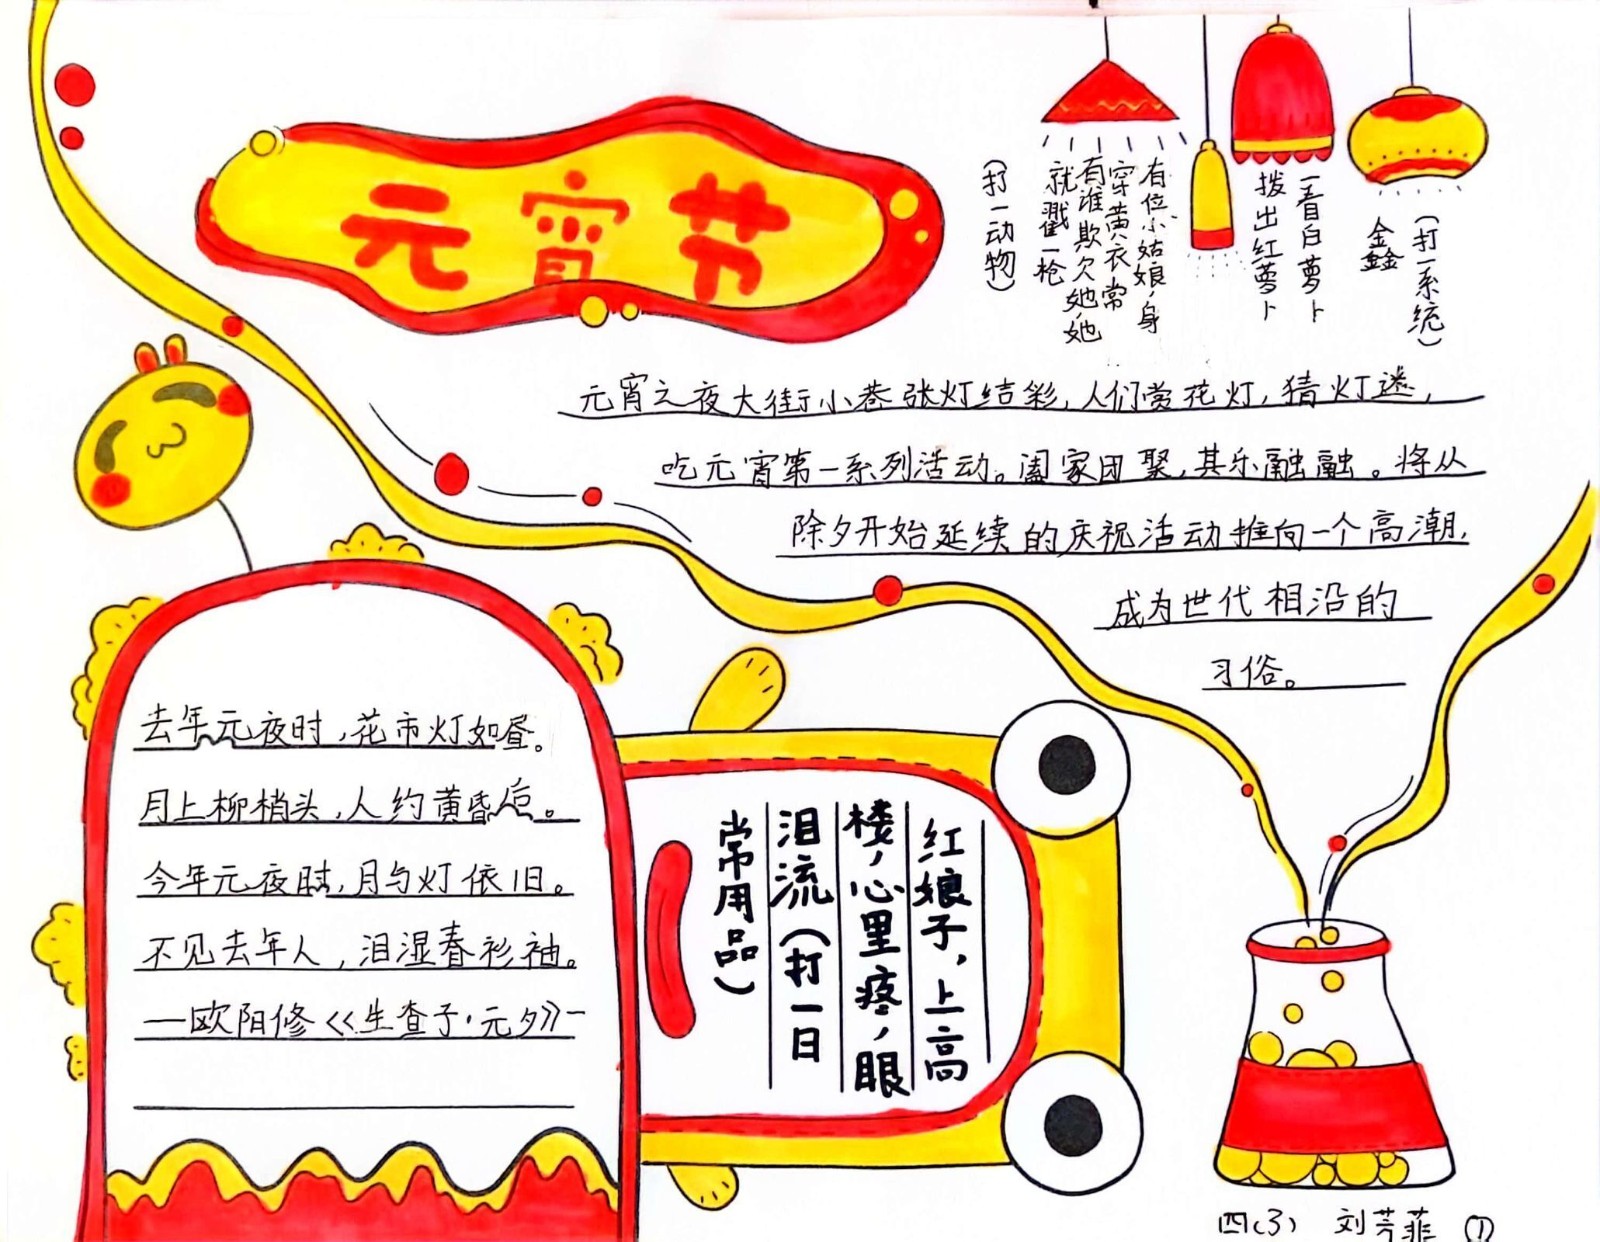 元宵节
有位小姑娘,身
穿黄衣常
有谁欺欠她,她
就戳一枪
(打一动物)
一看白萝卜
拨出红萝卜
(打一系统)
金鑫
元宵之夜大街小巷张灯结彩,人们赏花灯,猜灯迷,
吃元宵第一系列活动。阖家团聚,其乐融融。将从
除夕开始延续的庆祝活动推向一个高潮,
成为世代相沿的
习俗。
去年元夜时,花市灯如昼。
月上柳梢头,人约黄昏后。
今年元夜时,月与灯依旧。
不见去年人,泪湿春衫袖。
—欧阳修《生查子·元夕》—
红娘子,上高
楼,心里疼,眼
泪流(打一日
常用品)
四(3) 刘芳菲 ①